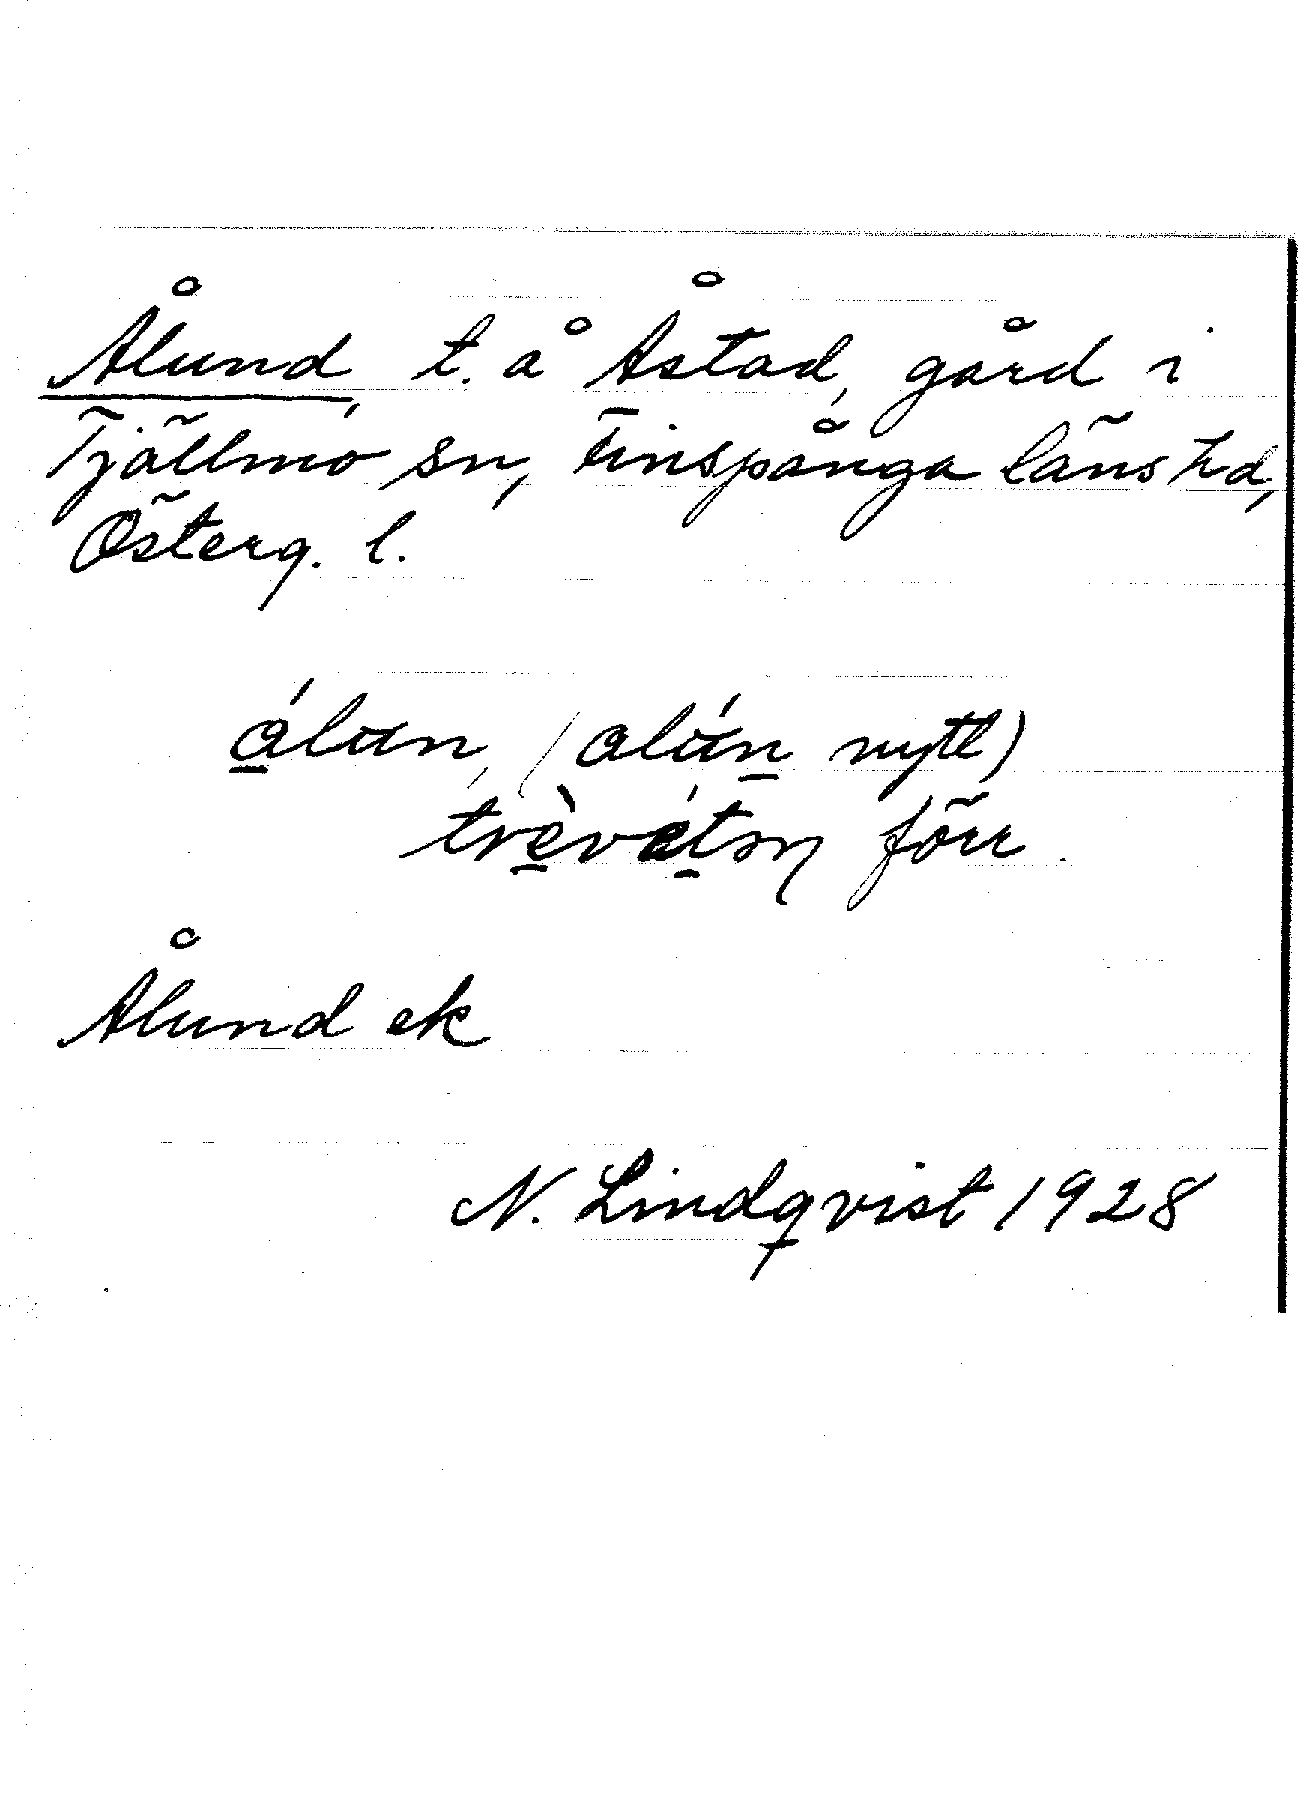 Ålund, t. å Åstad, gård i
Tjällmo sn, Finspånga läns hd,
Österg. l.
á̲lun, (alún̲ nytt)
trè̲vé̲təŋ förr.
Ålund ek
N. Lindqvist 1928